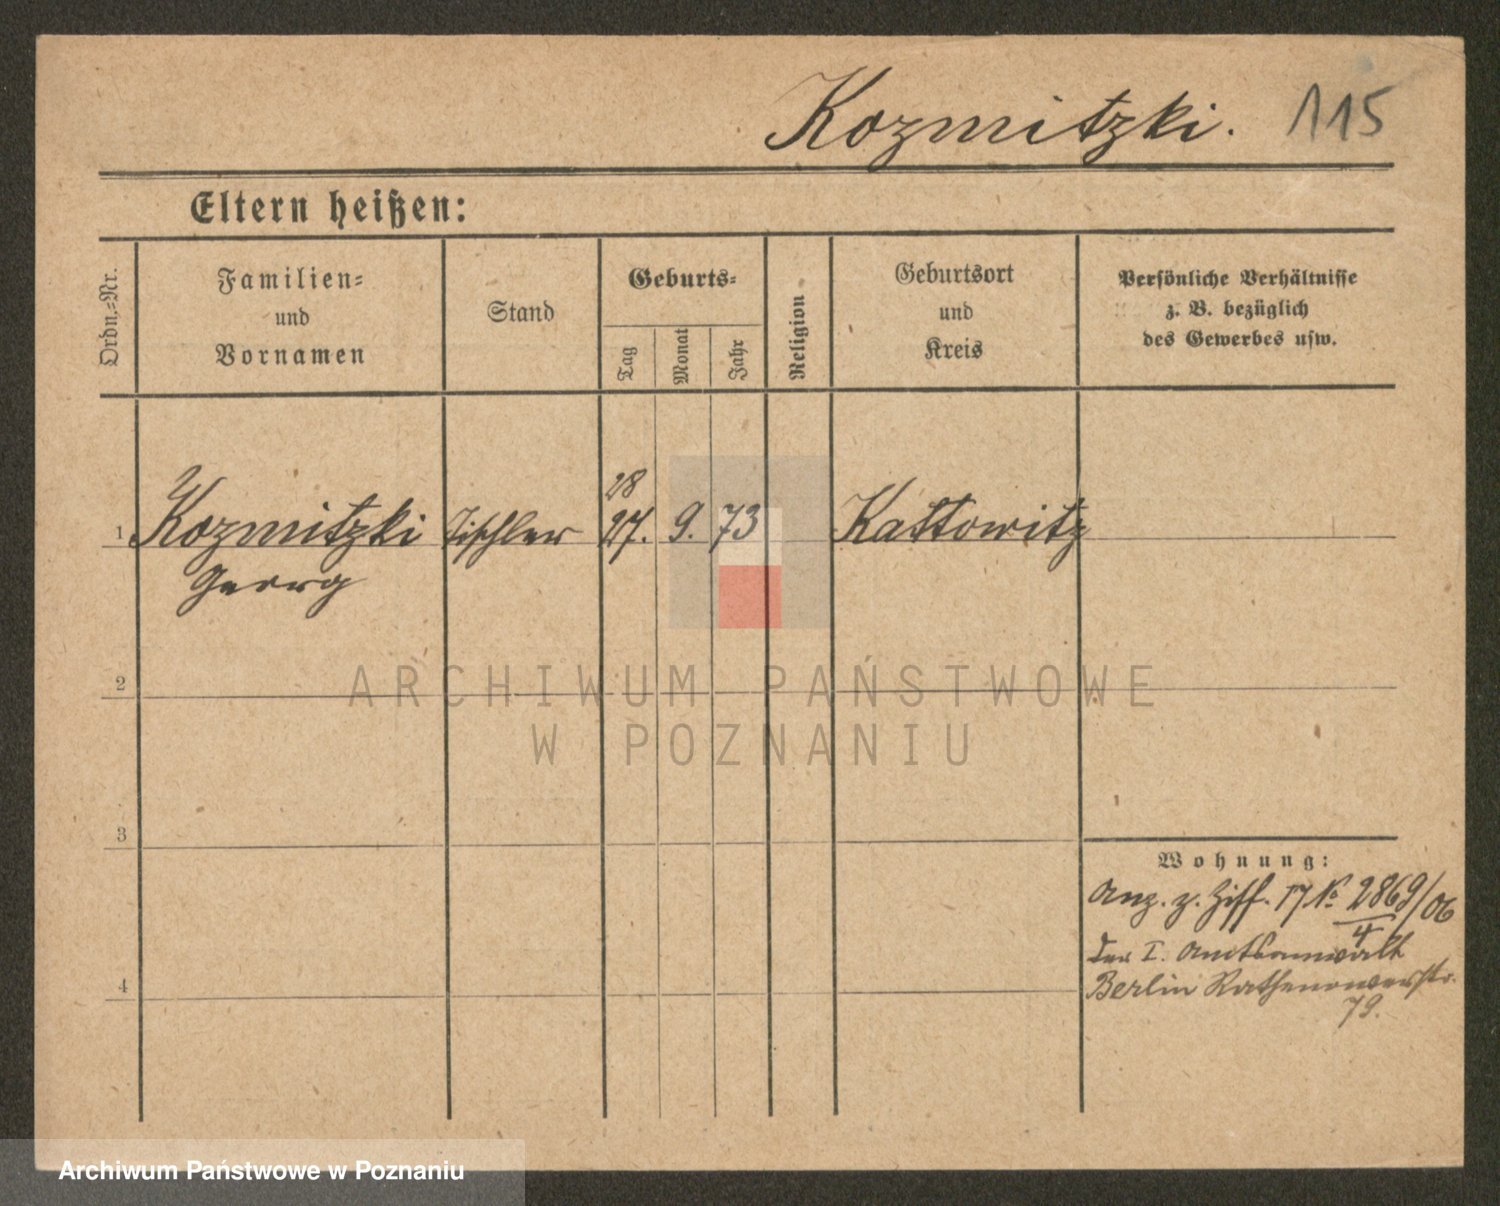 Kozmitzki. 115
Eltern heißen:
Ordn.-Nr.
Familien-
und
Vornamen
Stand
Geburts-
Tag
Monat
Jahr
Religion
Geburtsort
und
Kreis
Persönliche Verhältnisse
z. B. bezüglich
des Gewerbes usw.
28
1 Kozmitzki Tischler 27. 9. 73 Kattowitz
Georg
2
ARCHIWUM PAŃSTWOWE
W POZNANIU
3
Wohnung:
Anz. z. Ziff. 17 No 2869/06
4
Der I. Amtsanwalt
4 Berlin Rathenowerstr.
79.
Archiwum Państwowe w Poznaniu